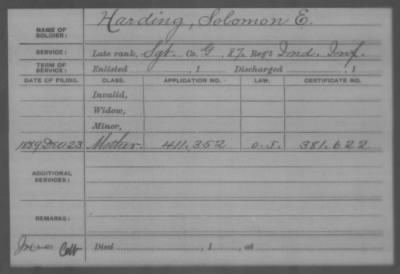 NAME OF SOLDIER: Harding, Solomon E.
SERVICE: Late rank, Sgt. Co. G, 87. Reg't Ind. Inf.
TERM OF SERVICE: Enlisted , 1 Discharged , 1
DATE OF FILING. CLASS. APPLICATION NO. LAW. CERTIFICATE NO.
Invalid,
Widow,
Minor,
1889 Dec 23 Mother. 411,352 O.S. 381,622
ADDITIONAL SERVICES:
REMARKS:
Died , 1 , at